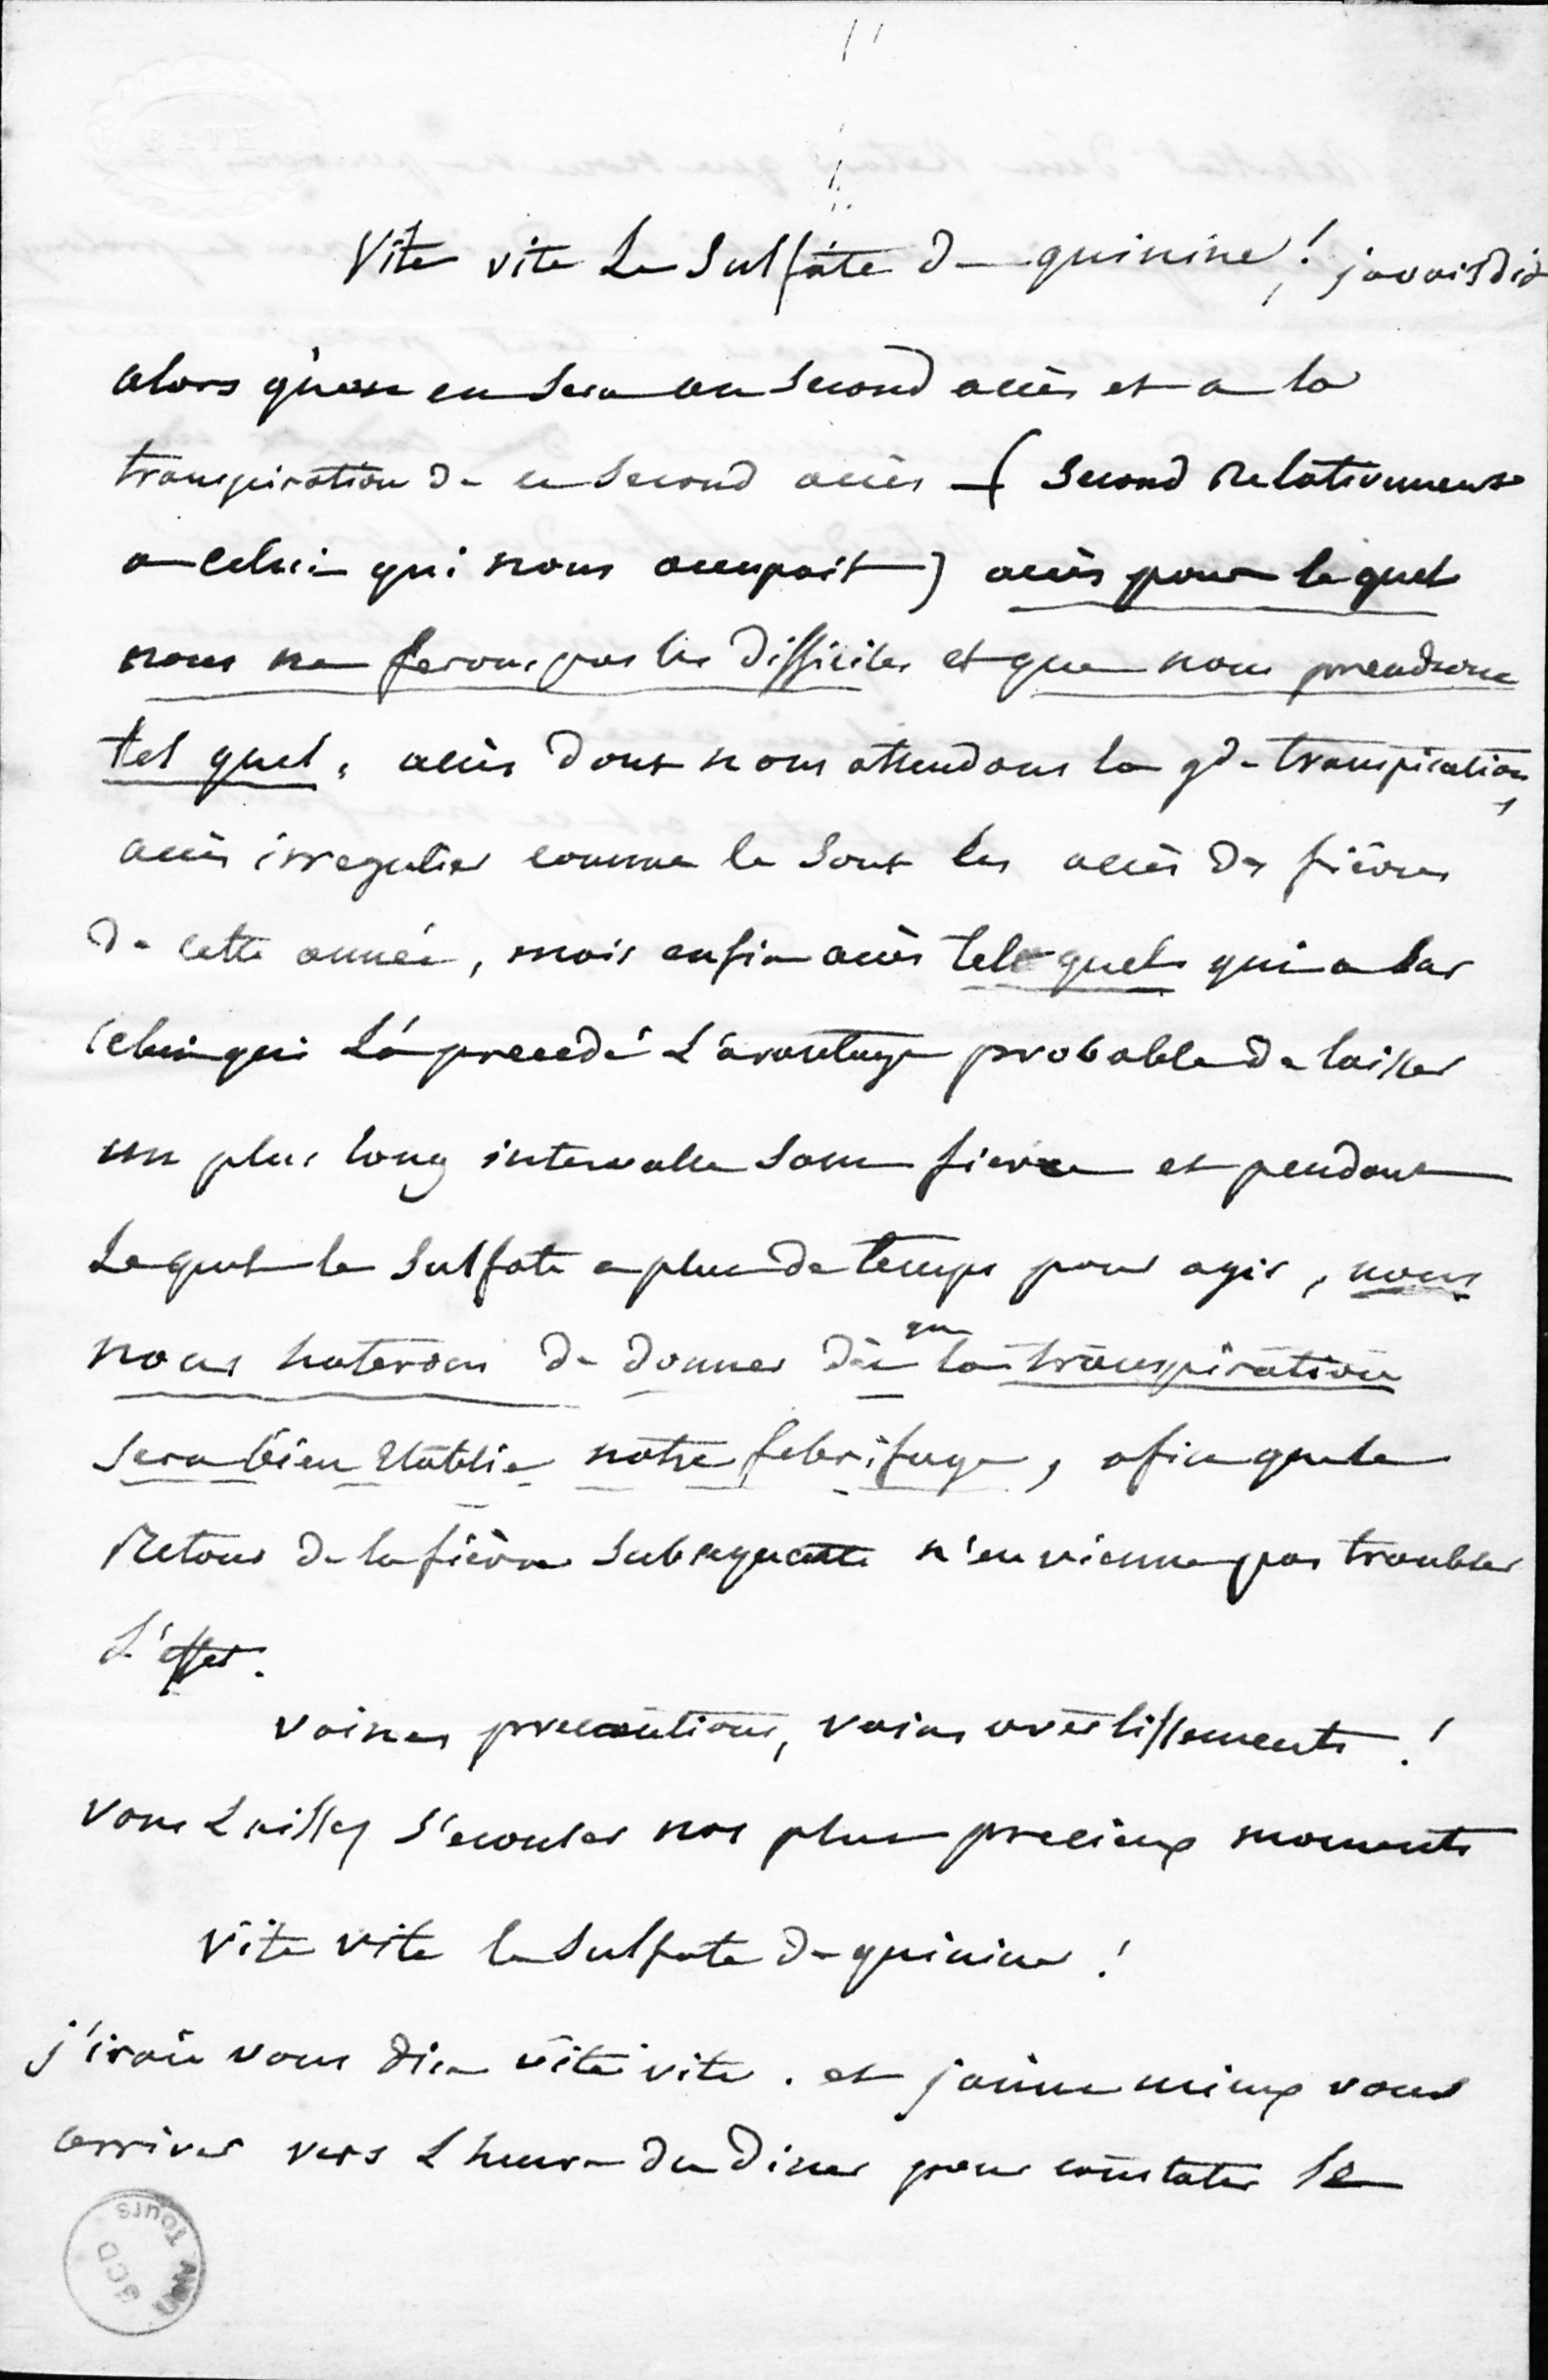 Vite vite Le Sulfate de quinine! javais dit
alors qu'on en sera au second accès et a la
transpiration de ce second accès — (second Relativement
a celui qui nous occupait) accès pour lequel
nous ne ferons pas les difficiles et que nous prendrons
tel quel, accès dont nous attendons la gde transpiration,
accès irregulier comme le sont les accès de fièvres
de cette année, mais enfin accès tel quel qui a sur
celui qui L'a precedé L'avantage probable de laisser
un plus long intervalle sans fievre et pendant
Lequel le Sulfate a plus de temps pour agir, nous
nous haterons de donner dès que la transpiration
sera bien Etablie notre febrifuge, afin que le
Retour de la fièvre subsequente n'en vienne pas troubler
L'effet.
vaines precautions, vains avertissements!
vous Laissez s'ecouler nos plus precieux moments
Vite vite le Sulfate de quinine!
j'irais vous dire vite vite. et j'aime mieux vous
arriver vers L heure du diner pour constater le
UNIV
Tours
SCD